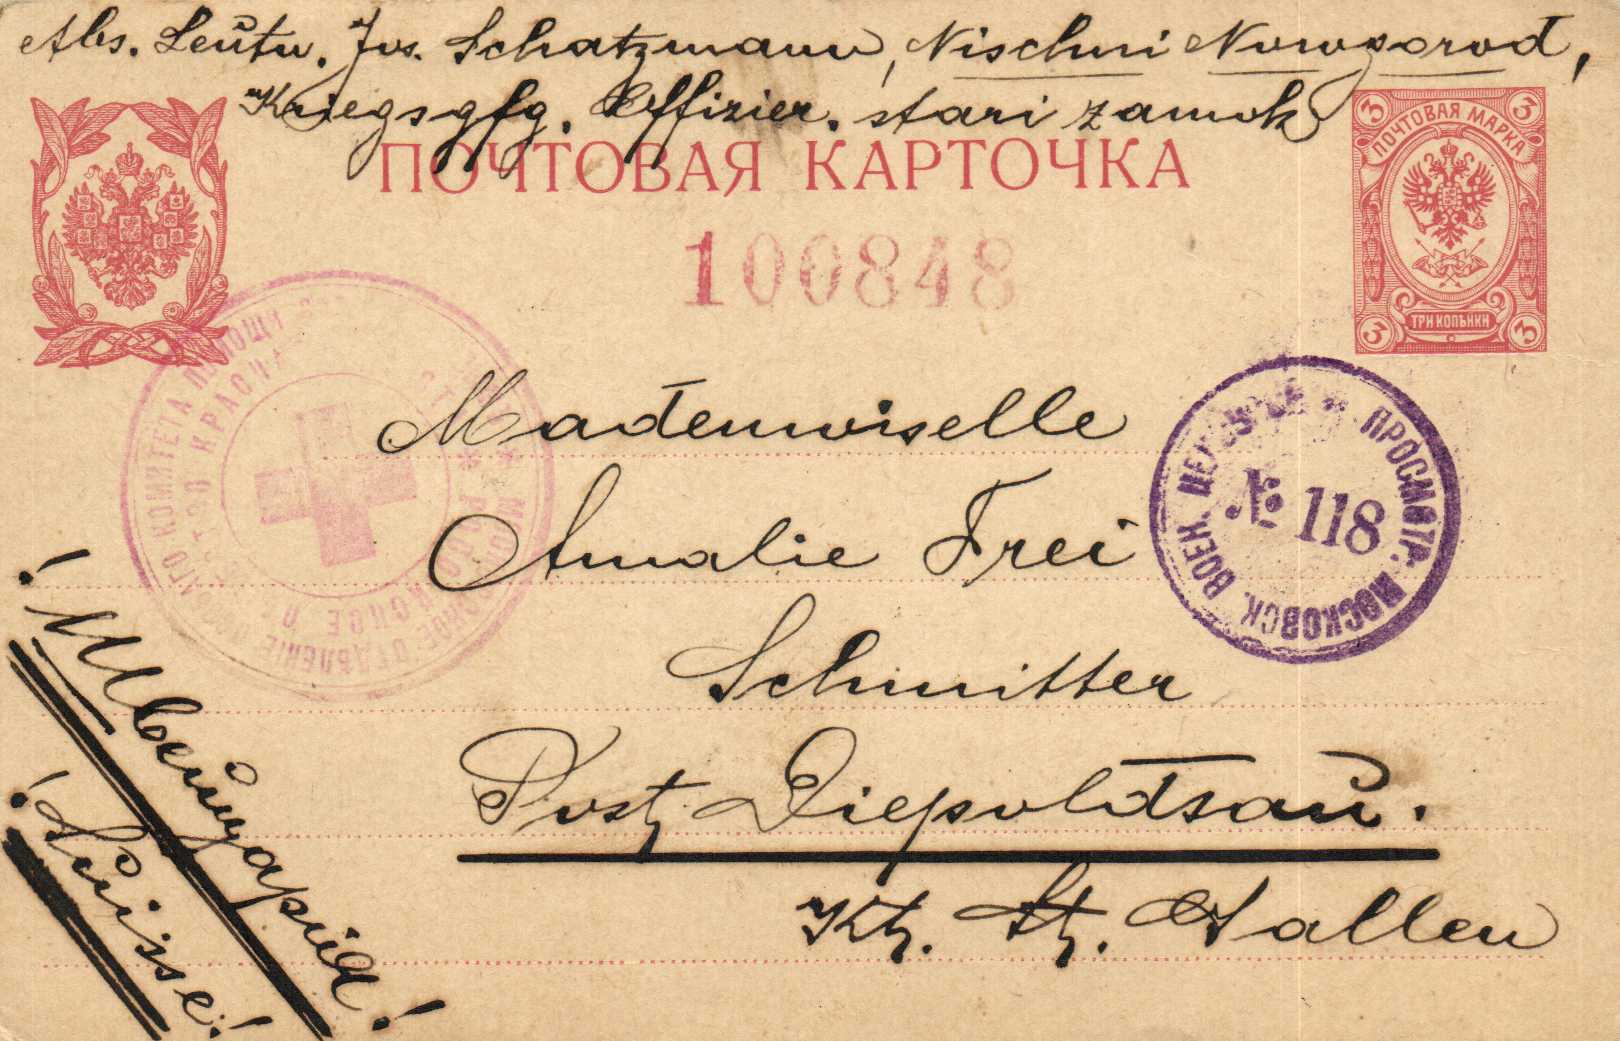 Abs. Leutn. Jos. Schatzmann, Nischni Nowgorod,
Kriegsgfg. Offizier. stari zamok
3 3
ПОЧТОВАЯ МАРКА
ТРИ КОПѢЙКИ
3 3
ПОЧТОВАЯ КАРТОЧКА
100848
КОМИТЕТА ПОМОЩИ
ОТДѢЛЕНIЕ
МОСКОВСК. ВОЕН. ПРОСМОТР.
№ 118
Mademoiselle
Amalie Frei
Schmitter
Post Diepoldsau.
Kt. St. Gallen
! Швейцарiя!
! Suisse!